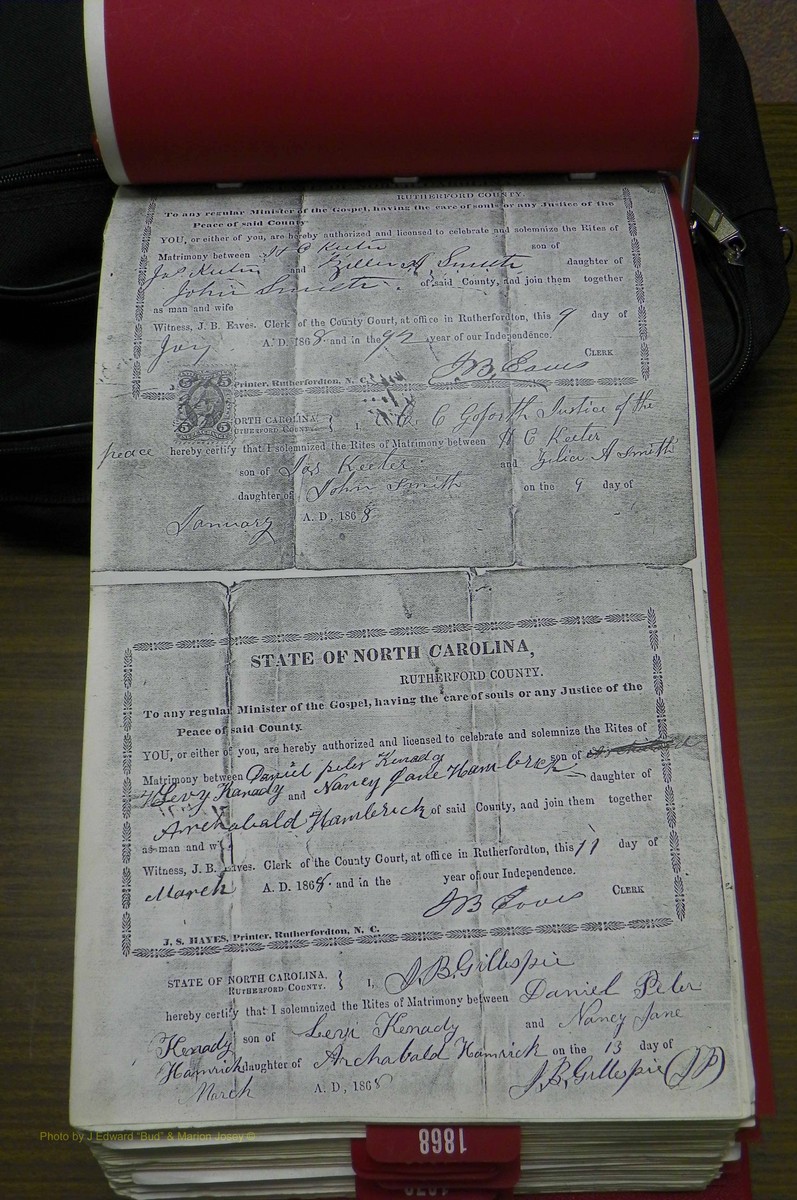 RUTHERFORD COUNTY.
To any regular Minister of the Gospel, having the care of souls or any Justice of the
Peace of said County
YOU, or either of you, are hereby authorized and licensed to celebrate and solemnize the Rites of
Matrimony between H C Keeter son of
Jas Keeter and Zillia A Smith daughter of
John Smith of said County, and join them together
as man and wife
Witness, J. B. Eaves. Clerk of the County Court, at office in Rutherfordton, this 9 day of
Jany A. D. 1868. and in the 92 year of our Independence.
J B. Eaves CLERK
Printer, Rutherfordton, N. C.
5 5
NORTH CAROLINA,
RUTHERFORD COUNTY. } I, C Goforth Justice of the
peace hereby certify that I solemnized the Rites of Matrimony between H C Keeter
son of Jas Keeter and Zilia A Smith
daughter of John Smith on the 9 day of
January A. D, 1868
STATE OF NORTH CAROLINA,
RUTHERFORD COUNTY.
To any regular Minister of the Gospel, having the care of souls or any Justice of the
Peace of said County
YOU, or either of you, are hereby authorized and licensed to celebrate and solemnize the Rites of
Matrimony between Daniel peler Kenady son of
Levy Kanady and Nancy Jane Hambrick daughter of
Archabald Hambrick of said County, and join them together
as man and
Witness, J. B. Eaves. Clerk of the County Court, at office in Rutherfordton, this 11 day of
March A. D. 1868. and in the year of our Independence.
J B Eaves CLERK
J. S. HAYES, Printer. Rutherfordton, N. C.
STATE OF NORTH CAROLINA,
RUTHERFORD COUNTY. } I, J. B. Gillespie
hereby certify that I solemnized the Rites of Matrimony between Daniel Peler
Kenady son of Levi Kenady and Nancy Jane
Hamrick daughter of Archabald Hamrick on the 13 day of
March A. D, 1868 J. B. Gillespie (JP)
Photo by J Edward "Bud" & Marion Joney ©
1868